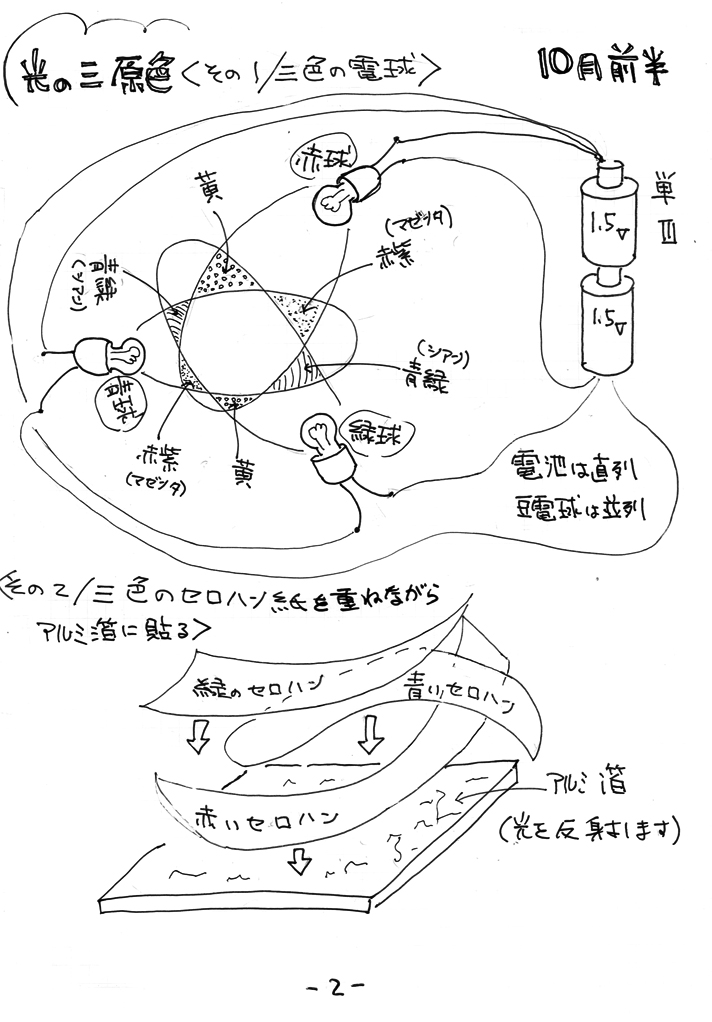 光の三原色〈その1/三色の電球〉
10月前半
赤球
黄
(マゼンタ)
赤紫
単III
1.5v
1.5v
青緑
(シアン)
青球
(シアン)
青緑
緑球
赤紫
(マゼンタ)
黄
電池は直列
豆電球は並列
〈その2/三色のセロハン紙を重ねながら
アルミ箔に貼る〉
緑のセロハン
青いセロハン
赤いセロハン
アルミ箔
(光を反射します)
-2-